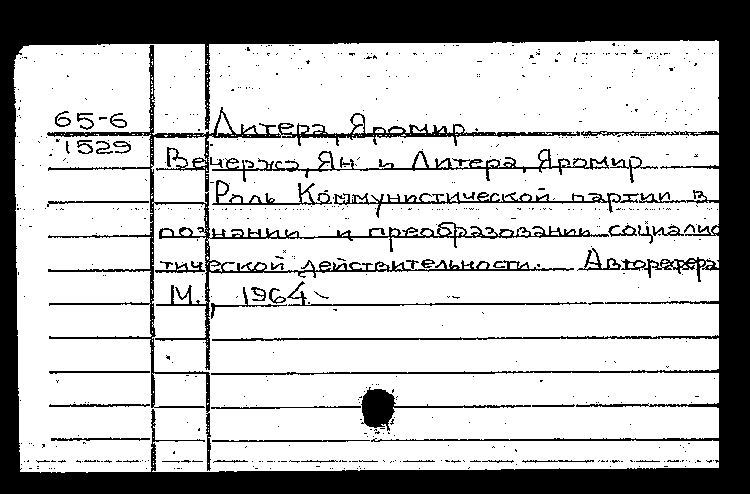 65-6 Литера, Яромир.
1529
Вечержа, Ян и Литера, Яромир
Роль Коммунистической партии в
познании и преобразовании социалис
тической действительности. Автореферат
М., 1964